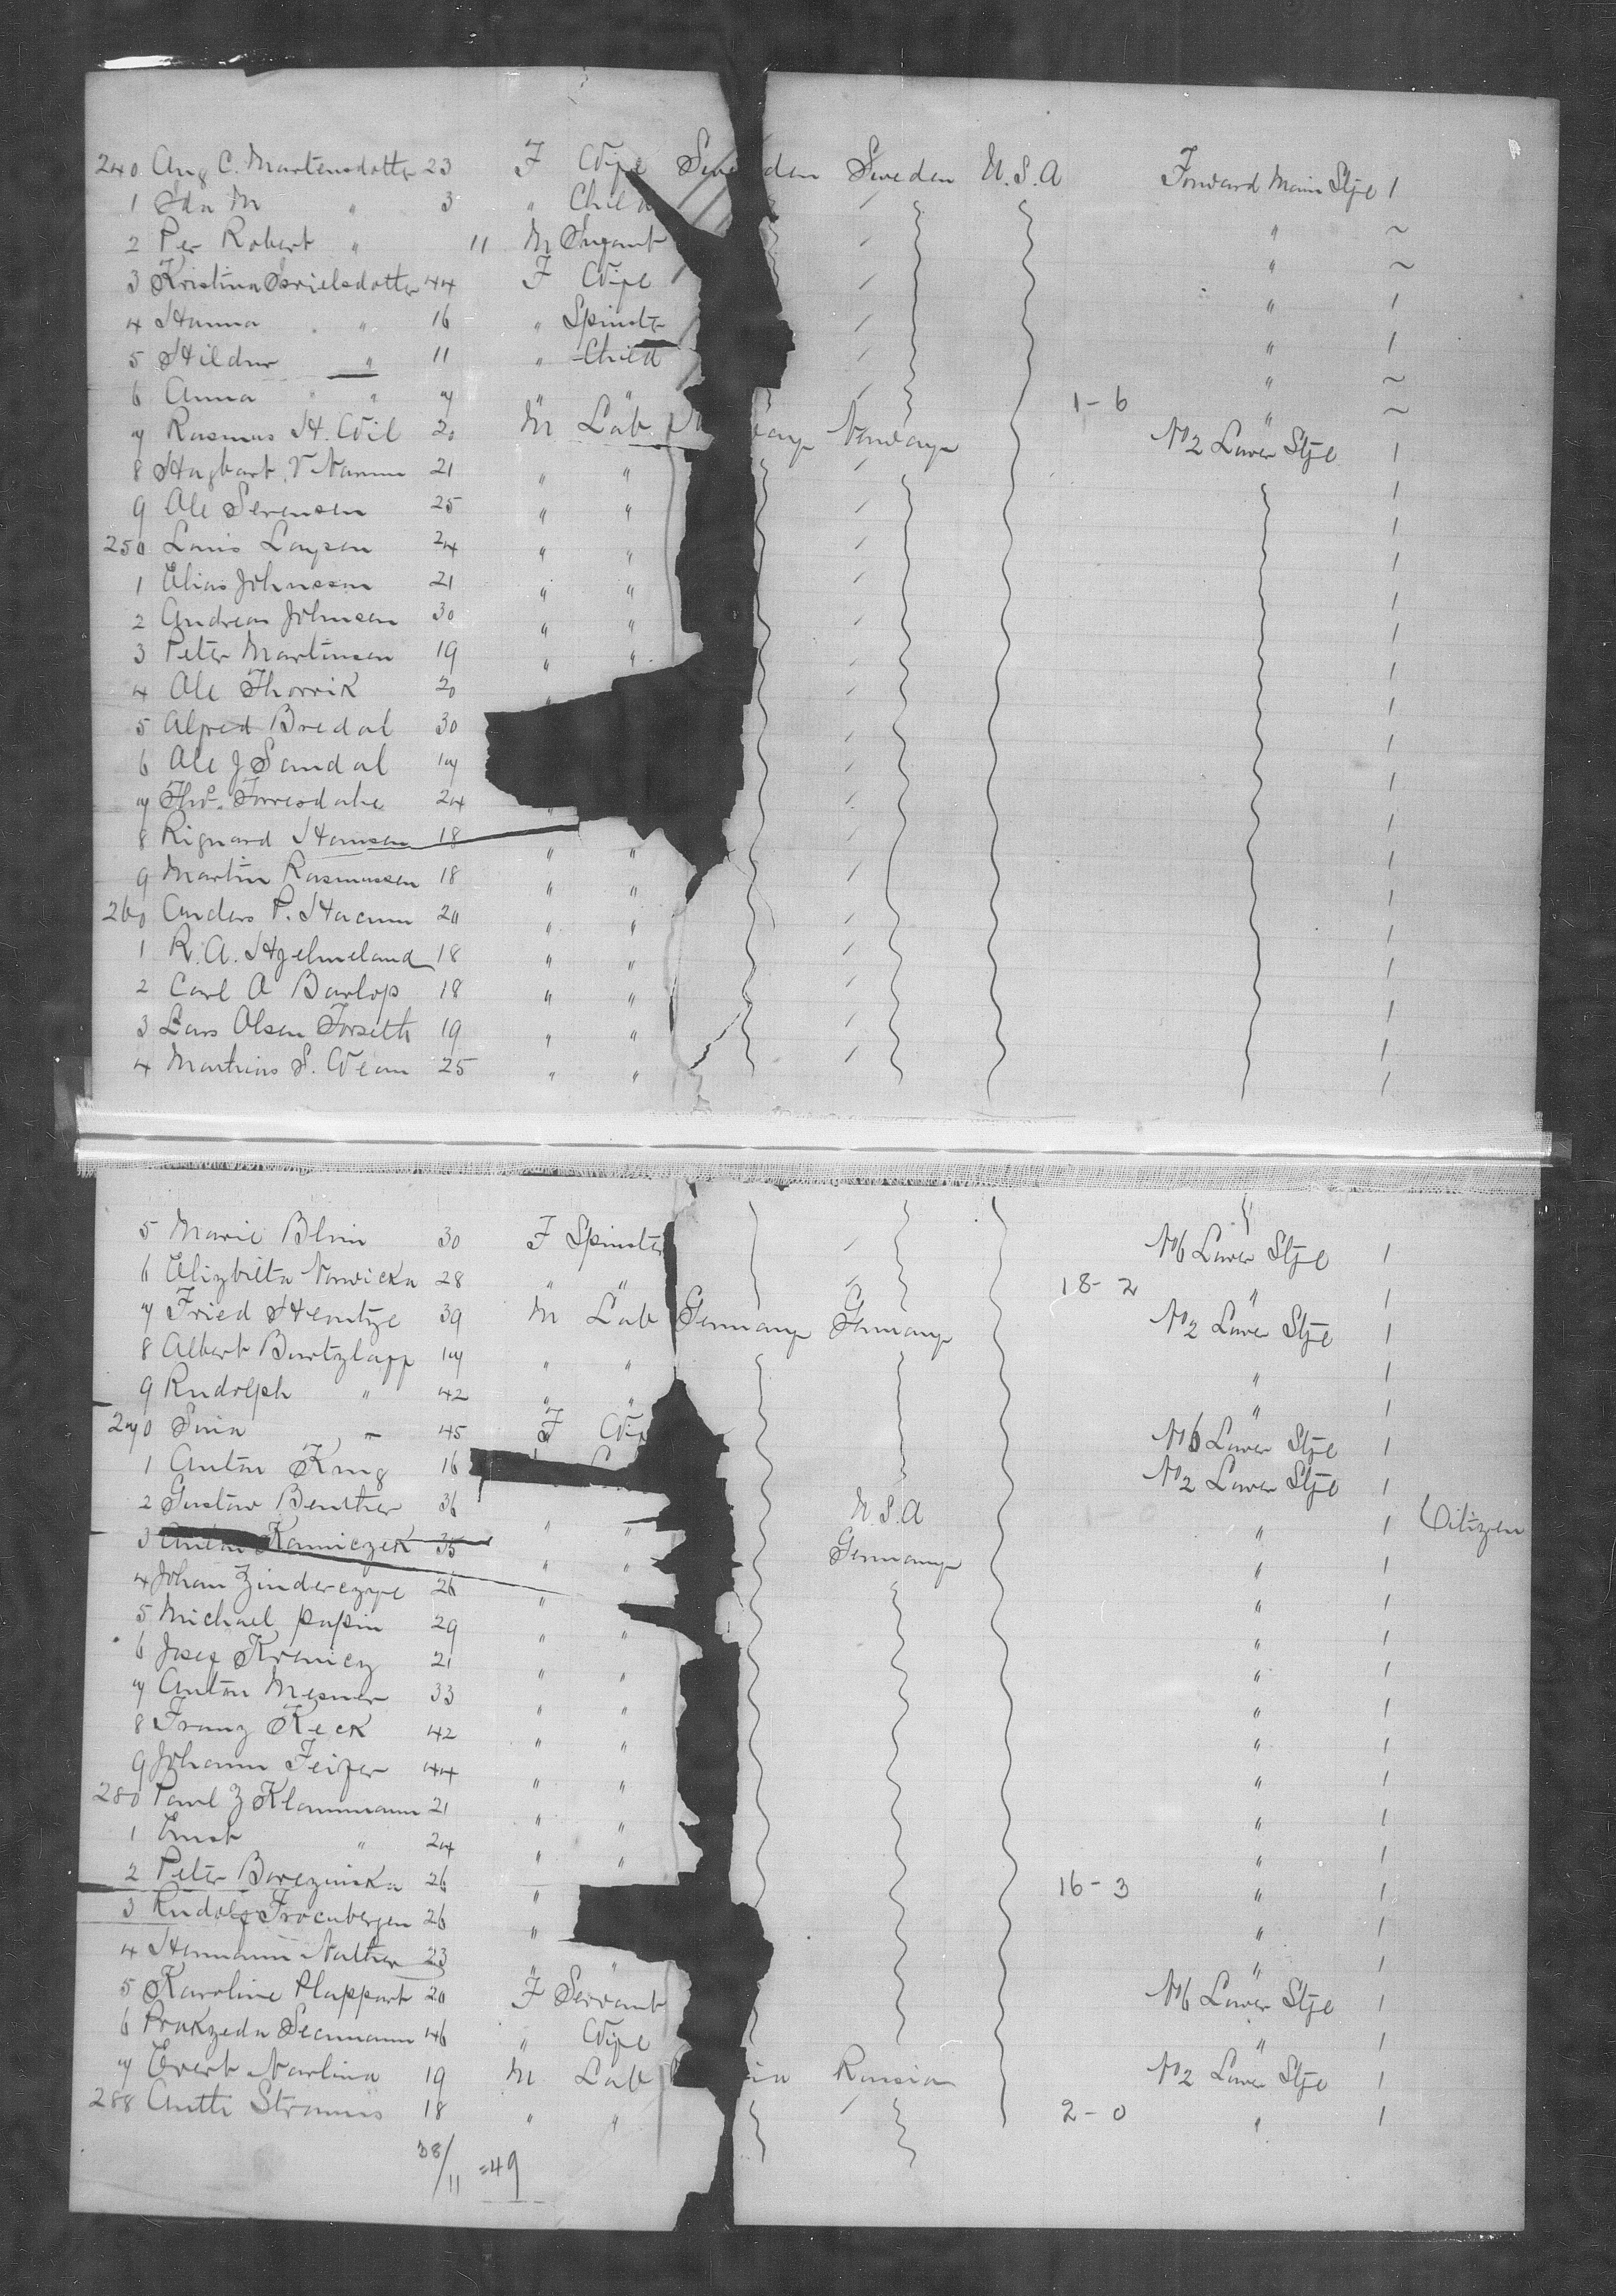 240 Aug C. Martensdotter 23 F Wife Sweden Sweden U.S.A Forward Main Stge 1
1 Ida M " 3 " Child " ~
2 Per Robert " 11 M Infant " ~
3 Kristina 44 F Wife " 1
4 Hanna " 16 " Spinster " 1
5 Hildur " 11 " Child " ~
6 Anna " " 7 " " 1-6 " ~
7 Rasmus H. Wil 20 M Lab Norway No 2 Lower Stge 1
8 Hagbart 21 " " 1
9 Ole Serensen 25 " " 1
250 Louis 24 " " 1
1 Elias Johnson 21 " " 1
2 Andreas Johnsen 30 " " 1
3 Peter Martinsen 19 " " 1
4 Ole Thorvik 20 " 1
5 Alfred Bredal 30 1
6 Ole J Sandal 17 1
7 Tho. Torresdahe 24 " 1
8 Rignard Hansen 18 " " 1
9 Martin Rasmussen 18 " " 1
260 Anders P. 20 " " 1
1 R. A. Hjelmeland 18 " " 1
2 Carl A Barlop 18 " " 1
3 Lars Olsen Forseth 19 " " 1
4 Mathias S. 25 " " 1
5 Marie Blum 30 F Spinster No 6 Lower Stge 1
6 Elizbieta Nowicka 28 " " 18-2 " 1
7 Fried Hentze 39 M Lab Germany Germany No 2 Lower Stge 1
8 Albert Bartzlaff 17 " " " 1
9 Rudolph " 42 " " " 1
270 " 45 F Wife No 6 Lower Stge 1
1 Anton Krug 16 No 2 Lower Stge 1
2 Gustav Benther 36 " " U.S.A " 1 Citizen
3 Anton Kaniczek 35 " " Germany " 1
4 Johan 26 " " 1
5 Michael Papin 29 " " " 1
6 Josef 21 " " " 1
7 Anton Mesner 33 " " " 1
8 Franz Keck 42 " " " 1
9 Johann Feifer 44 " " " 1
280 Paul Z Klammann 21 " " " 1
1 Ernst " 24 " " " 1
2 Peter Borczinska 26 " 16-3 " 1
3 Rudolf 26 " " 1
4 Hermann Nather 23 " " " 1
5 Karoline Plappart 20 F Servant No 6 Lower Stge 1
6 Prakzeda Seemann 46 " Wife " 1
7 Evert Narlina 19 M Lab Russia No 2 Lower Stge 1
288 Antti 18 " " 2-0 " 1
38/11 =49